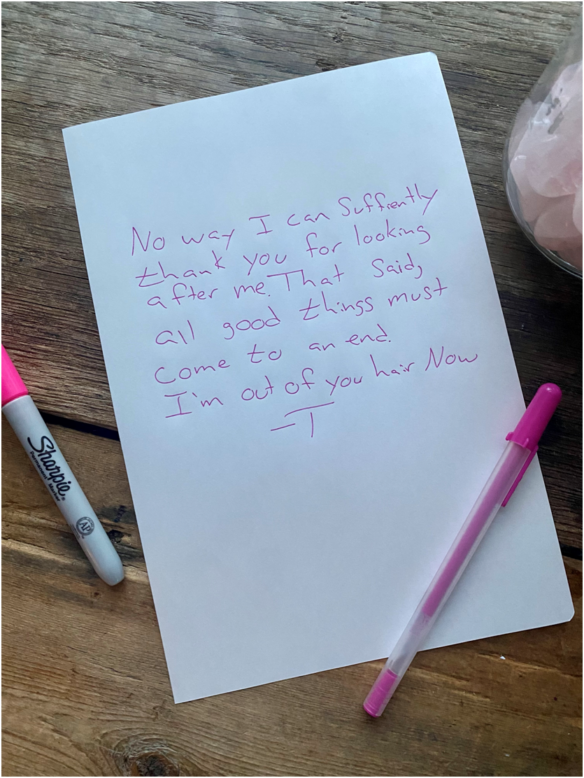 No way I can Suffiently
thank you for looking
after me. That Said,
all good things must
Come to an end.
I'm out of you hair Now
–T
Sharpie
Permanent Marker
AP